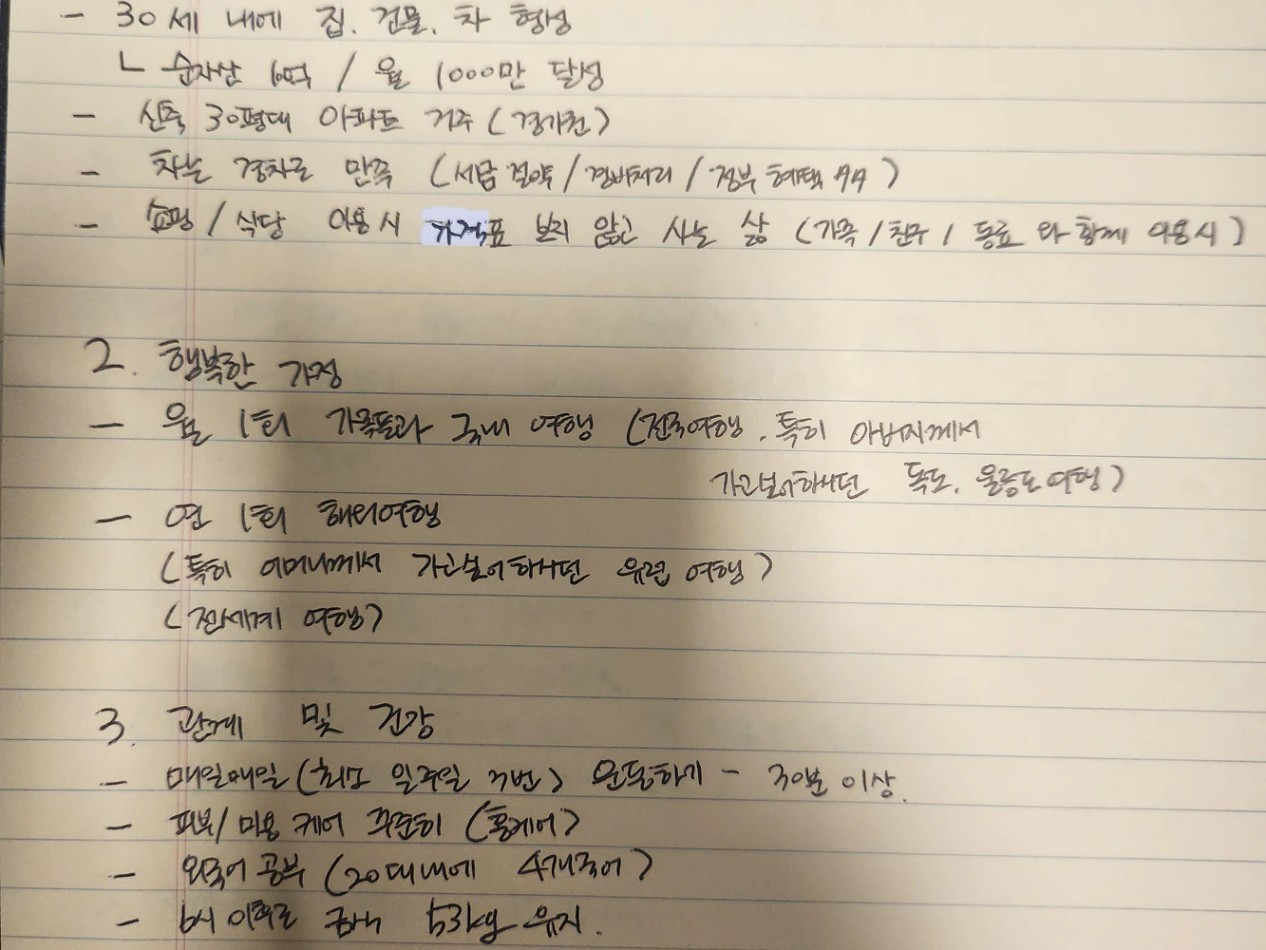 - 30세 내에 집. 건물. 차 형성
ㄴ 순자산 10억 / 월 1000만 달성
- 신축 30평대 아파트 거주 (경기권)
- 차는 경차로 만족 (세금 절약 / 경비처리 / 정부 혜택 有有)
- 쇼핑 / 식당 이용시 가격표 보지 않고 사는 삶 (가족 / 친구 / 동료와 함께 이용시)
2. 행복한 가정
- 월 1회 가족들과 국내 여행 (전국여행. 특히 아버지께서
가고싶어하시던 독도. 울릉도 여행)
- 연 1회 해외여행
(특히 어머니께서 가고싶어하시던 유럽 여행)
(전세계 여행)
3. 관계 및 건강
- 매일매일 (최소 일주일 3번) 운동하기 - 30분 이상.
- 피부/미용 케어 꾸준히 (홈케어)
- 외국어 공부 (20대내에 4개국어)
- 6시 이후로 금식 53kg 유지.